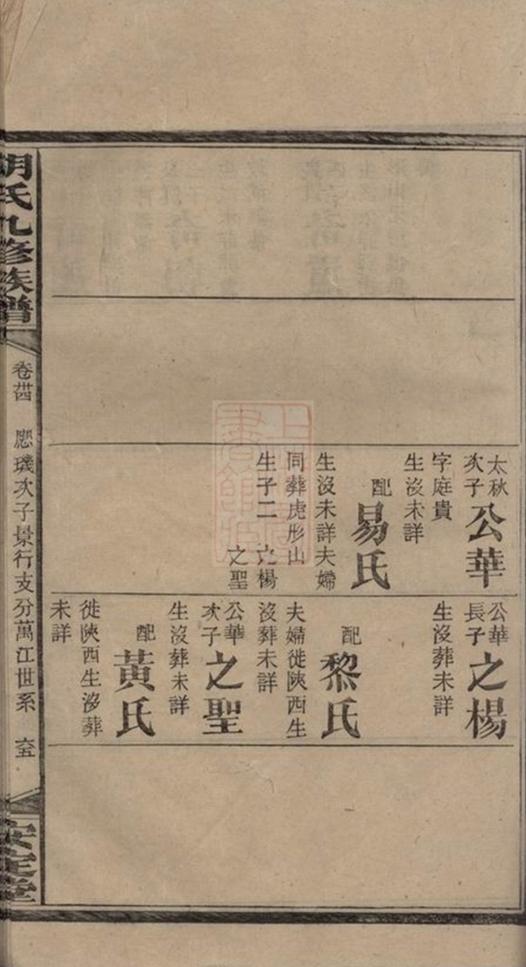 太秋次子
公華
字庭貴
生沒未詳
配
易氏
生沒未詳夫婦
同葬虎形山
生子二 之楊
之聖
公華長子
之楊
生沒葬未詳
配
黎氏
夫婦徙陝西生
沒葬未詳
公華次子
之聖
生沒葬未詳
配
黃氏
徙陝西生沒葬
未詳
胡氏九修族譜
卷廿四 應璣次子景行支分萬江世系 六五
安定堂